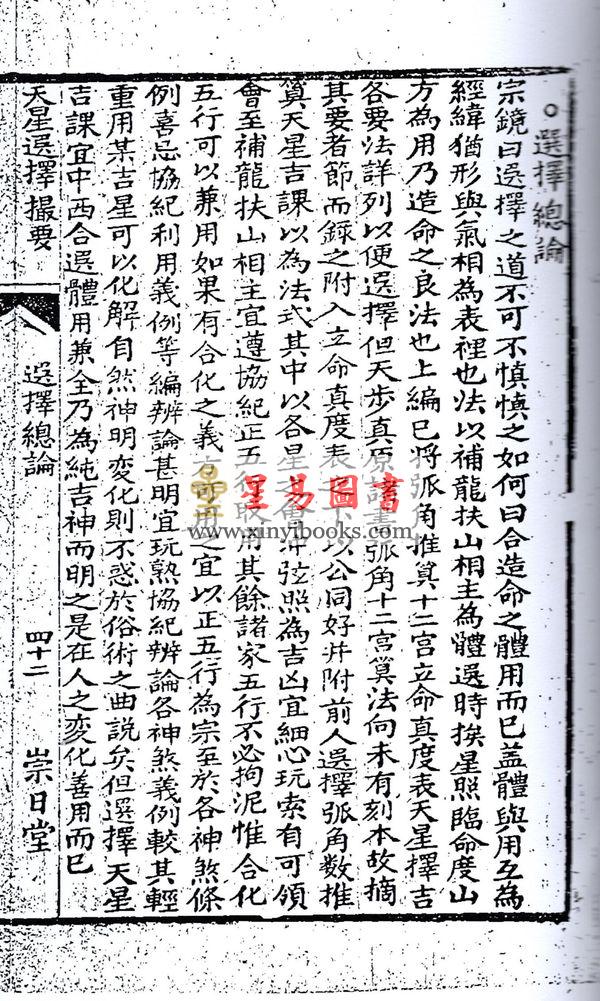 ○選擇總論
宗鏡曰選擇之道不可不慎慎之如何曰合造命之體用而已蓋體與用互為
經緯猶形與氣相為表裡也法以補龍扶山相主為體選時挨星照臨命度山
方為用乃造命之良法也上編已將弧角推算十二宮立命真度表天星擇吉
各要法詳列以便選擇但天步真原諸書弧角十二宮算法向未有刻本故摘
其要者節而錄之附入立命真度表之下以公同好并附前人選擇弧角數推
算天星吉課以為法式其中以各星之會沖弦照為吉凶宜細心玩索自可領
會至補龍扶山相主宜遵協紀正五行取用其餘諸家五行不必拘泥惟合化
五行可以兼用如果有合化之義方可用之宜以正五行為宗至於各神煞條
例喜忌協紀利用義例等編辨論甚明宜玩熟協紀辨論各神煞義例較其輕
重用某吉星可以化解自然神明変化則不惑於俗術之曲說矣但選擇天星
吉課宜中西合選體用兼全乃為純吉神而明之是在人之変化善用而已
天星選擇撮要
選擇總論
四十二
崇日堂
星易圖書
www.xinyibooks.com